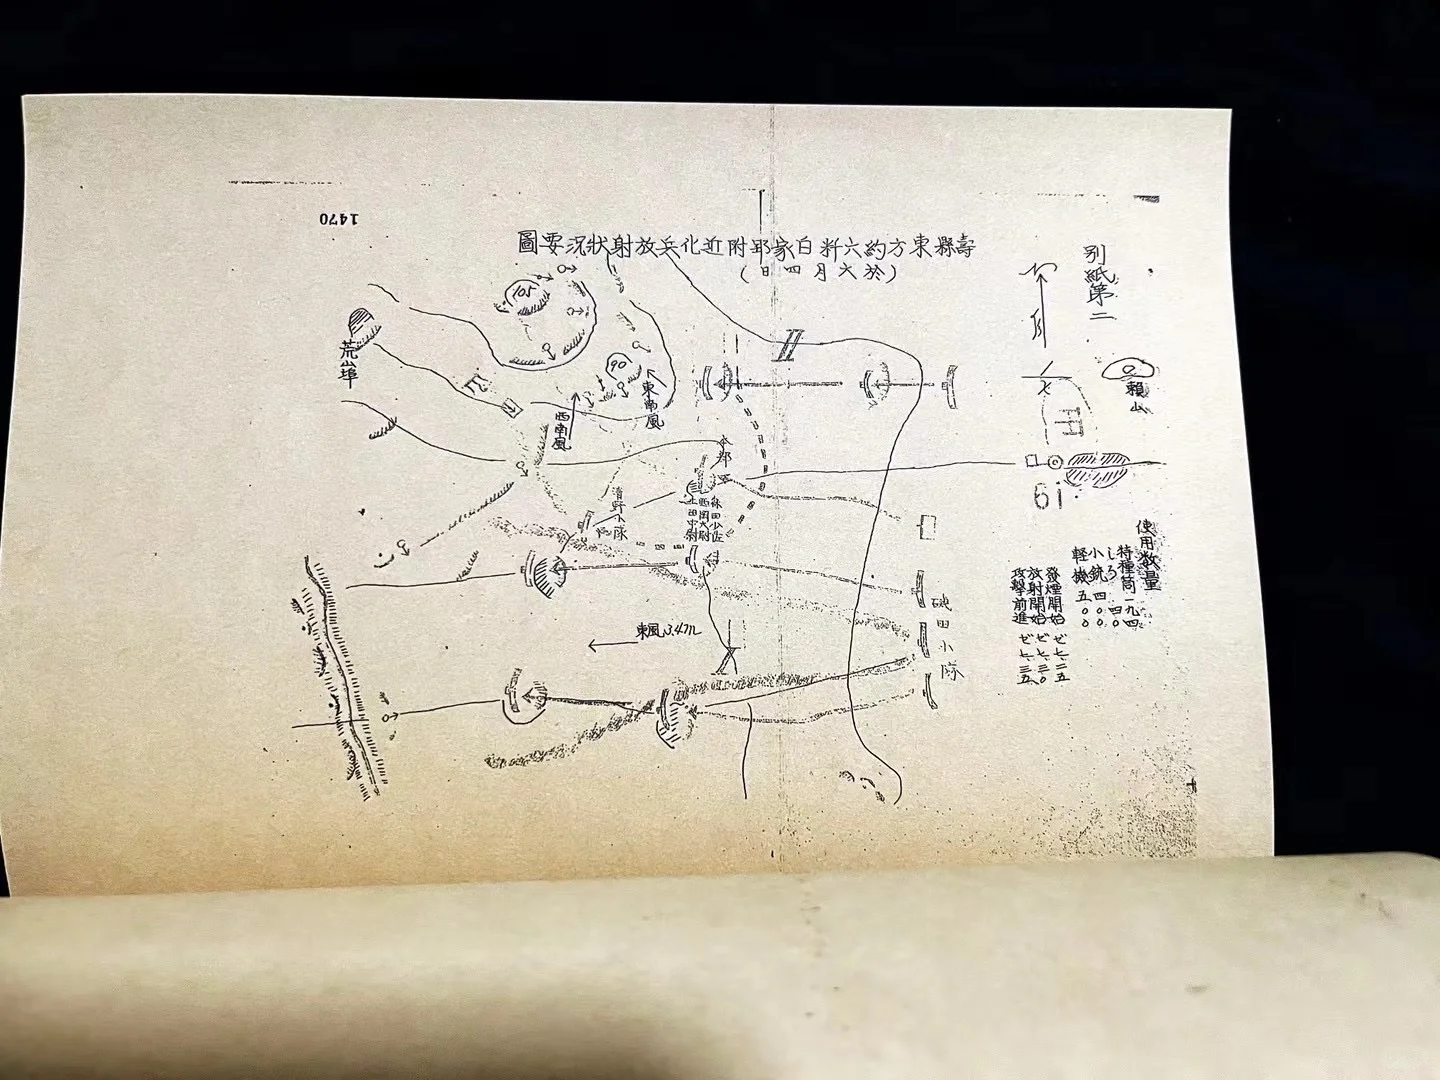 1470
別紙第二
壽縣東方約六粁白家邱附近化兵放射狀況要圖
(於六月四日)
賴山
荒埠
105
90
東南風
西南風
本部
清野小隊
6i
東風3.4m
磯田小隊
使用数量
特種筒 一九四
しろ 四〇
小銃 四〇〇
軽機 五〇〇
發煙開始 ゼ七二五
放射開始 ゼ七三〇
攻撃前進 ゼ七三五